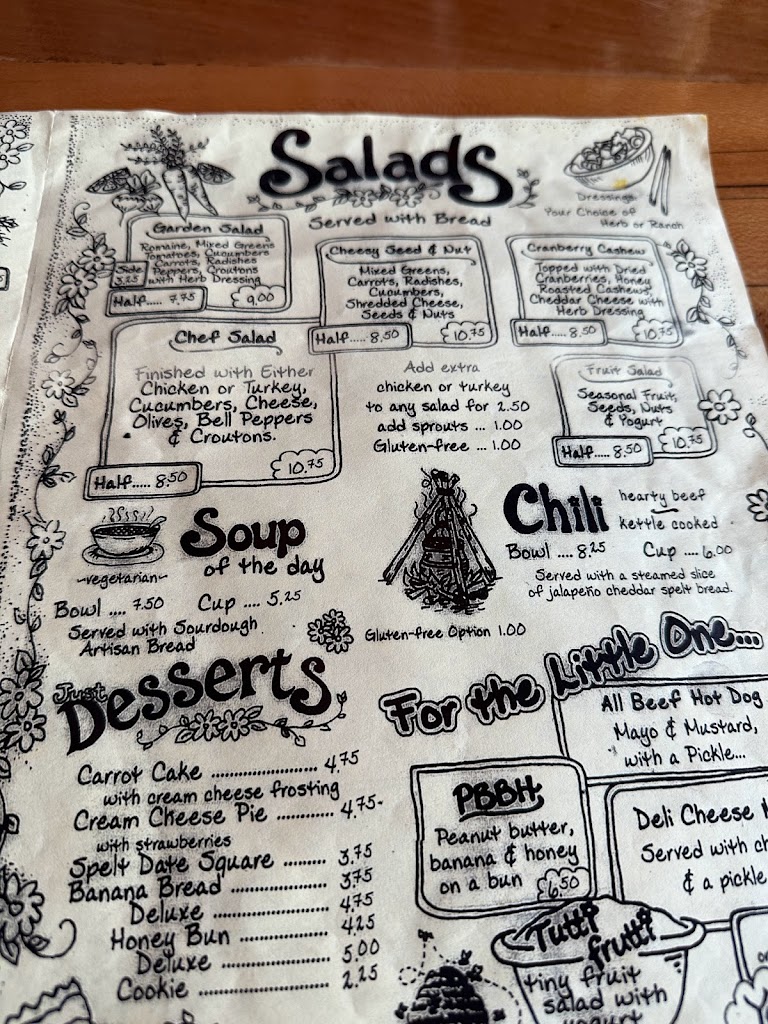 Salads
Served with Bread
Dressings:
Your Choice of
Herb or Ranch
Garden Salad
Romaine, Mixed Greens
Tomatoes, Cucumbers
Carrots, Radishes
Peppers, Croutons
with Herb Dressing
Side
3.25
Half..... 7.75
9.00
Cheesy Seed & Nut
Mixed Greens,
Carrots, Radishes,
Cucumbers,
Shredded Cheese,
Seeds & Nuts
Half..... 8.50
10.75
Cranberry Cashew
Topped with Dried
Cranberries, Honey
Roasted Cashews,
Cheddar Cheese with
Herb Dressing
Half..... 8.50
10.75
Chef Salad
Finished with Either
Chicken or Turkey,
Cucumbers, Cheese,
Olives, Bell Peppers
& Croutons.
Half..... 8.50
10.75
Add extra
chicken or turkey
to any salad for 2.50
add sprouts ... 1.00
Gluten-free ... 1.00
Fruit Salad
Seasonal Fruit,
Seeds, Nuts
& Yogurt
Half..... 8.50
10.75
Soup
of the day
~vegetarian~
Bowl .... 7.50 Cup .... 5.25
Served with Sourdough
Artisan Bread
Chili hearty beef
kettle cooked
Bowl .... 8.25 Cup .... 6.00
Served with a steamed slice
of jalapeño cheddar spelt bread.
Gluten-free Option 1.00
Just
Desserts
Carrot Cake .................... 4.75
with cream cheese frosting
Cream Cheese Pie ............ 4.75-
with strawberries
Spelt Date Square ......... 3.75
Banana Bread ................. 3.75
Deluxe ...................... 4.75
Honey Bun .................. 4.25
Deluxe ...................... 5.00
Cookie ........................ 2.25
For the Little One...
All Beef Hot Dog
Mayo & Mustard,
with a Pickle...
PBBH
Peanut butter,
banana & honey
on a bun
6.50
Deli Cheese
Served with ch
& a pickle
Tutti
frutti
tiny fruit
salad with
yogurt